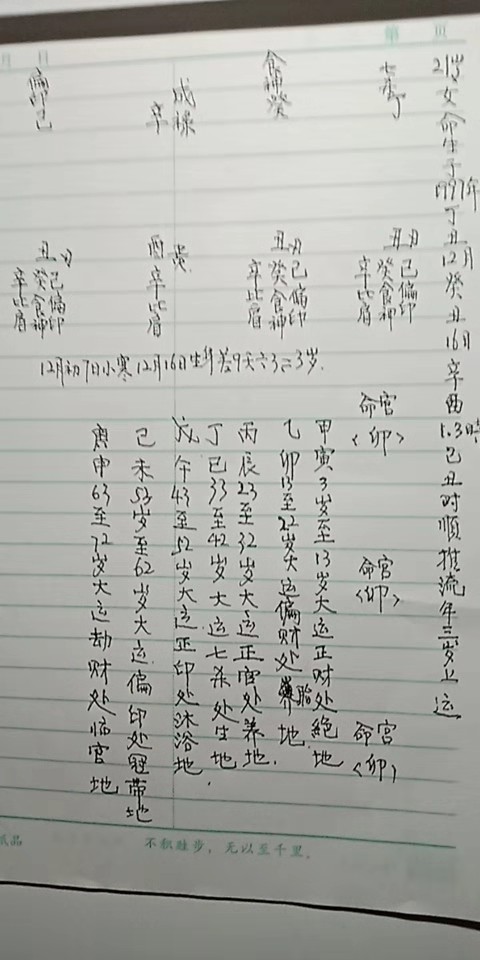 第 页
月 日
21岁女命生于1997年丁丑12月癸丑16日辛酉1.3時己丑时順推流年三岁上运
七杀丁
食神癸
戌祿
辛
偏印己
丑月
己偏印
癸食神
辛比肩
丑月
己偏印
癸食神
辛比肩
酉
辛比肩
丑月
己偏印
癸食神
辛比肩
12月初7日小寒12月16日生年差9天÷3=3岁.
命宫
<卯>
命宫
<卯>
命宫
<卯>
甲寅3岁至13岁大运正财处絕地
乙卯13至22岁大运偏财处胎地.
丙辰23至32岁大运正官处养地.
丁巳33至42岁大运七杀处生地.
戊午43至52岁大运正印处沐浴地
己未53岁至62岁大运偏印处冠带地
庚申63至72岁大运劫财处临官地
纸品
不积跬步，无以至千里。